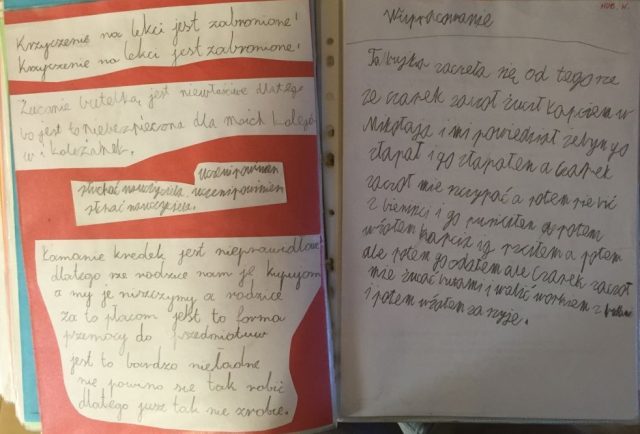 Krzyczenie na lekci jest zabronione!
Krzyczenie na lekci jest zabronione!
Żucanie butelką jest niewłaściwe dlatego
bo jest to niebezpieczna dla moich kolegów
i koleżanek.
Uczeń powinien
słuchać nauczyciela. uczeń powinien
słuchać nauczyciela.
Łamanie kredek jest nieprawidłowe
dlatego rze rodzice nam je kupujom
a my je niszczymy a rodzice
za to płacom jest to forma
przemocy do przedmiotuw
jest to bardzo nieładne
nie powino sie tak robić
dlatego jusz tak nie zrobie.
Wypracowanie
Ta bujka zaczeła się od tego rze
rze czarek zaczoł żucić kapciem w
Mikołaja i mi powiedział żebym go
złapał i go złapałem a czarek
zaczoł mie szczypać a potem sie bić
z i go puściłem go potem
wziołem kapcia i a potem
ale potem go oddałem ale czarek zaczoł
mie butami i walić workiem z
i potem wziołem za szyje.